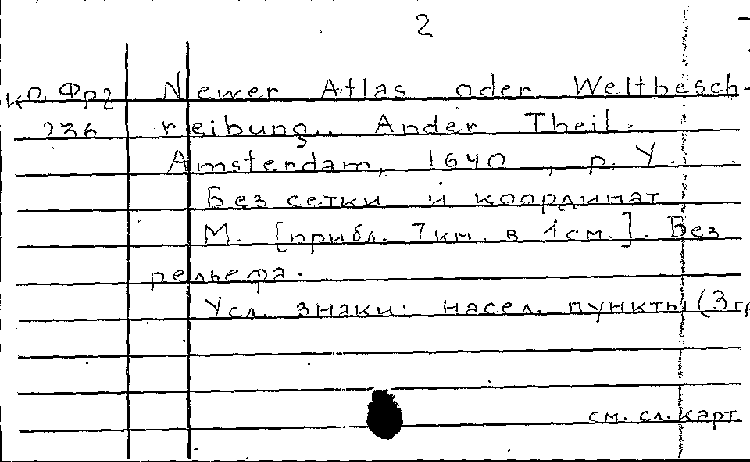 2
КП Фр2 Newer Atlas oder Weltbesch-
236 reibung.. Ander Theil.
Amsterdam, 1640, p. Y.
Без сетки и координат
М. [прибл. 7 км. в 1 см.]. Без
рельефа.
Усл. знаки: насел. пункты (3 гр
см. сл. карт